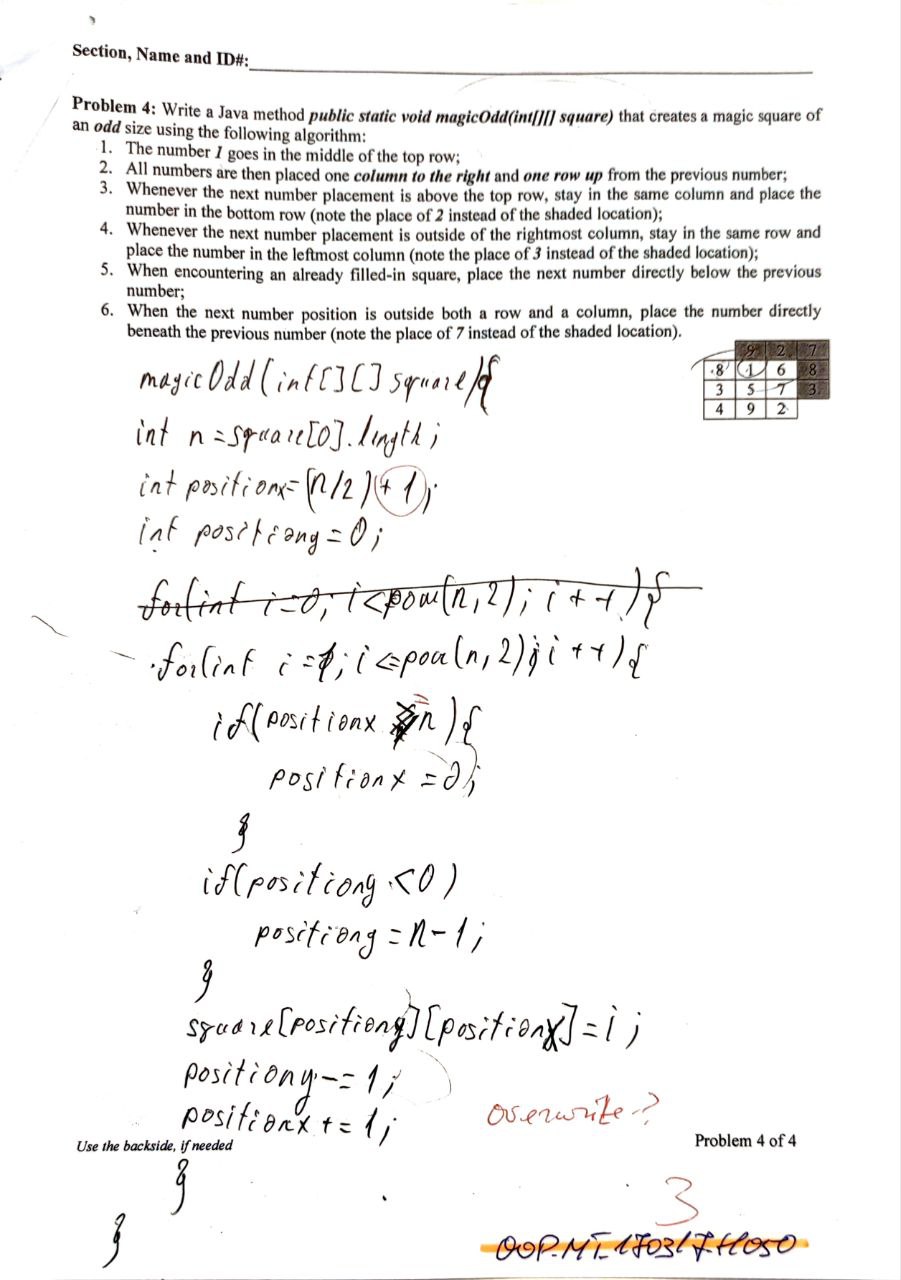 Section, Name and ID#:
Problem 4: Write a Java method public static void magicOdd(int[][] square) that creates a magic square of
an odd size using the following algorithm:
1. The number 1 goes in the middle of the top row;
2. All numbers are then placed one column to the right and one row up from the previous number;
3. Whenever the next number placement is above the top row, stay in the same column and place the
number in the bottom row (note the place of 2 instead of the shaded location);
4. Whenever the next number placement is outside of the rightmost column, stay in the same row and
place the number in the leftmost column (note the place of 3 instead of the shaded location);
5. When encountering an already filled-in square, place the next number directly below the previous
number;
6. When the next number position is outside both a row and a column, place the number directly
beneath the previous number (note the place of 7 instead of the shaded location).
9 2 7
8 1 6 8
3 5 7 3
4 9 2
magicOdd(int[][] square){
int n=square[0].length;
int positionx=(n/2)+1;
int positiony=0;
for(int i=0; i<pow(n,2); i++){
for(int i=1; i<=pow(n,2); i++){
if(positionx =n){
positionx =0;
}
if(positiony <0)
positiony =n-1;
}
square[positiony][positionx]=i;
positiony-=1;
positionx+=1;
overwrite?
Use the backside, if needed
Problem 4 of 4
}
3
}
OOP.MT.170317.H050